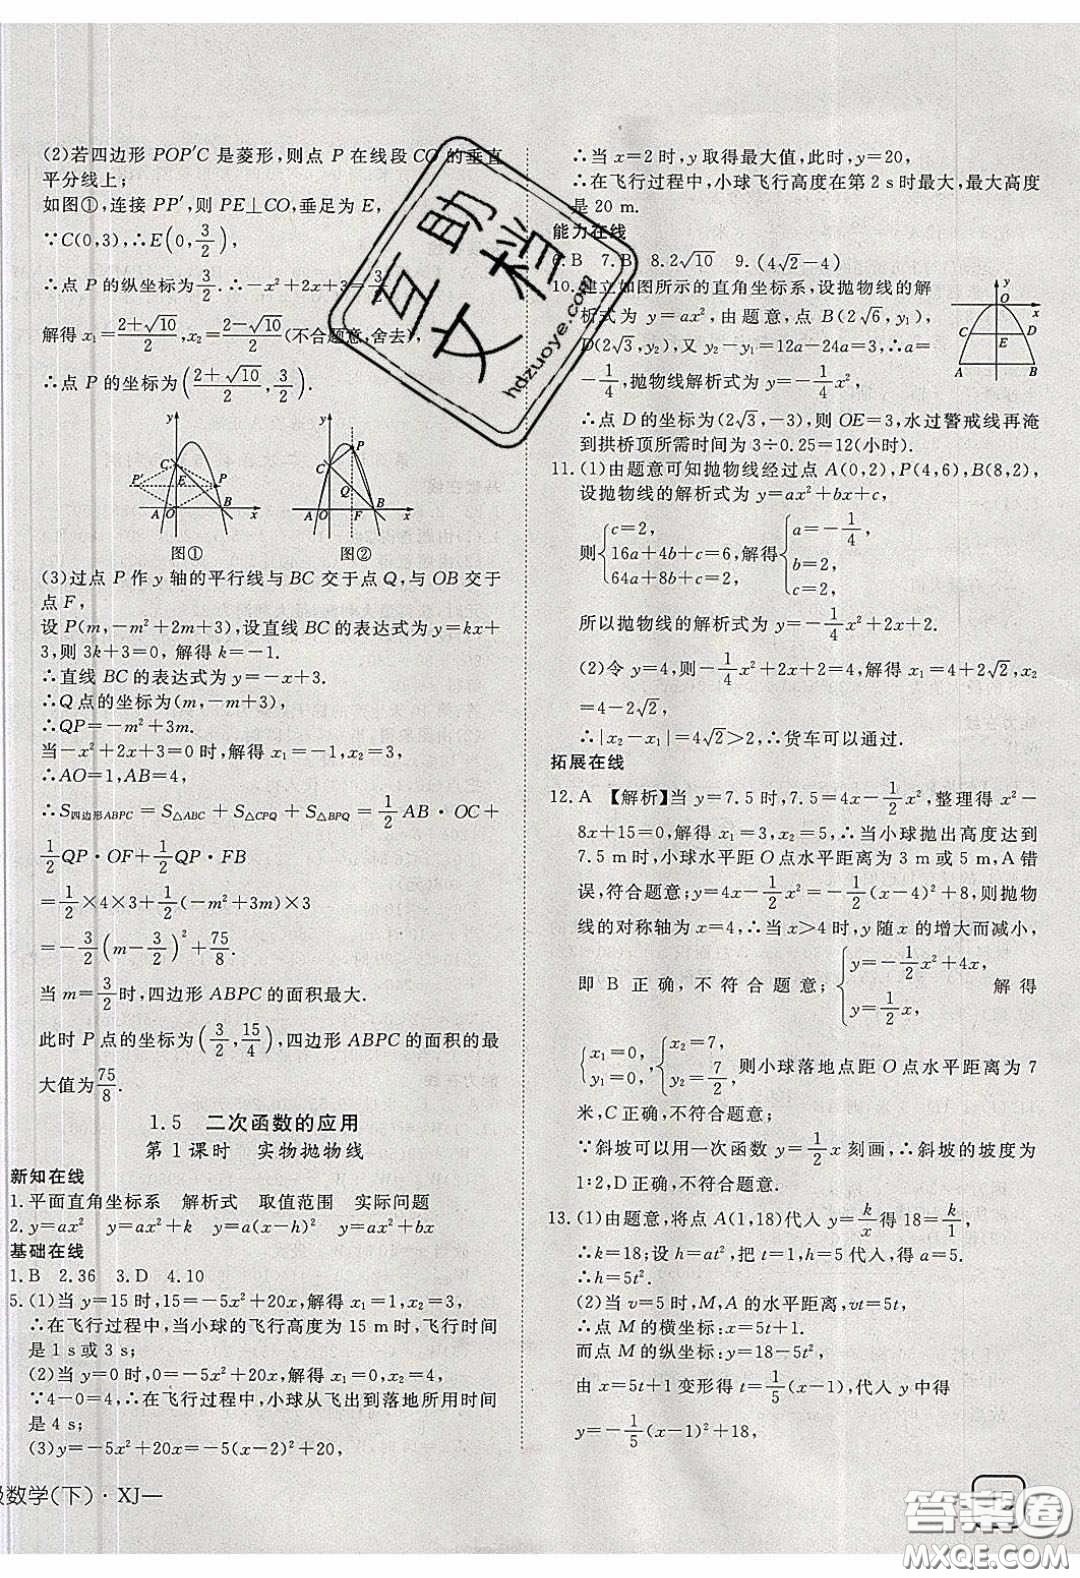 (2)若四边形 POP′C 是菱形,则点 P 在线段 CO 的垂直
平分线上;
如图①,连接 PP′,则 PE⊥CO,垂足为 E,
∵C(0,3),∴E(0,3/2),
∴点 P 的纵坐标为3/2.∴-x²+2x+3=3/2
解得 x₁=(2+√10)/2,x₂=(2-√10)/2(不合题意,舍去),
∴点 P 的坐标为((2+√10)/2,3/2).
y C P′ E P A O B x
图①
y C P Q A O F B x
图②
(3)过点 P 作 y 轴的平行线与 BC 交于点 Q,与 OB 交于
点 F,
设 P(m,-m²+2m+3),设直线 BC 的表达式为 y=kx+
3,则 3k+3=0,解得 k=-1.
∴直线 BC 的表达式为 y=-x+3.
∴Q 点的坐标为(m,-m+3),
∴QP=-m²+3m.
当-x²+2x+3=0 时,解得 x₁=-1,x₂=3,
∴AO=1,AB=4,
∴S四边形ABPC=S△ABC+S△CPQ+S△BPQ=1/2AB·OC+
1/2QP·OF+1/2QP·FB
=1/2×4×3+1/2(-m²+3m)×3
=-3/2(m-3/2)²+75/8.
当 m=3/2时,四边形 ABPC 的面积最大.
此时 P 点的坐标为(3/2,15/4),四边形 ABPC 的面积的最
大值为75/8.
1.5 二次函数的应用
第1课时 实物抛物线
新知在线
1.平面直角坐标系 解析式 取值范围 实际问题
2.y=ax² y=ax²+k y=a(x-h)² y=ax²+bx
基础在线
1.B 2.36 3.D 4.10
5.(1)当 y=15 时,15=-5x²+20x,解得 x₁=1,x₂=3,
∴在飞行过程中,当小球的飞行高度为 15 m时,飞行时间
是 1 s 或 3 s;
(2)当 y=0 时,0=-5x²+20x,解得 x₁=0,x₂=4,
∵4-0=4,∴在飞行过程中,小球从飞出到落地所用时间
是 4 s;
(3)y=-5x²+20x=-5(x-2)²+20,
级数学(下)·XJ—
∴当 x=2时,y取得最大值,此时,y=20,
∴在飞行过程中,小球飞行高度在第 2 s时最大,最大高度
是 20 m.
能力在线
6.B 7.B 8.2√10 9.(4√2-4)
10.建立如图所示的直角坐标系,设抛物线的解
析式为 y=ax²,由题意,点 B(2√6,y₁),
D(2√3,y₂),又 y₂-y₁=12a-24a=3,∴a=
-1/4,抛物线解析式为 y=-1/4x²,
y O x C D E A B
∴点 D 的坐标为(2√3,-3),则 OE=3,水过警戒线再淹
到拱桥顶所需时间为 3÷0.25=12(小时).
11.(1)由题意可知抛物线经过点 A(0,2),P(4,6),B(8,2),
设抛物线的解析式为 y=ax²+bx+c,
则{c=2, 16a+4b+c=6, 64a+8b+c=2,解得{a=-1/4, b=2, c=2,
所以抛物线的解析式为 y=-1/4x²+2x+2.
(2)令 y=4,则-1/4x²+2x+2=4,解得 x₁=4+2√2,x₂
=4-2√2,
∴|x₂-x₁|=4√2>2,∴货车可以通过.
拓展在线
12.A 【解析】当 y=7.5 时,7.5=4x-1/2x²,整理得 x²-
8x+15=0,解得 x₁=3,x₂=5,∴当小球抛出高度达到
7.5 m时,小球水平距 O点水平距离为 3 m或 5 m,A 错
误,符合题意;y=4x-1/2x²=-1/2(x-4)²+8,则抛物
线的对称轴为 x=4,∴当 x>4 时,y 随 x 的增大而减小,
即 B 正确,不符合题意;{y=-1/2x²+4x, y=1/2x, 解得
{x₁=0, y₁=0, {x₂=7, y₂=7/2, 则小球落地点距 O点水平距离为 7
米,C 正确,不符合题意;
∵斜坡可以用一次函数 y=1/2x 刻画,∴斜坡的坡度为
1∶2,D正确,不符合题意.
13.(1)由题意,将点 A(1,18)代入 y=k/x得 18=k/1,
∴k=18;设 h=at²,把 t=1,h=5代入,得 a=5.
∴h=5t².
(2)当 v=5 时,M,A 的水平距离,vt=5t,
∴点 M 的横坐标:x=5t+1.
而点 M 的纵坐标:y=18-5t²,
由 x=5t+1 变形得 t=1/5(x-1),代入 y 中得
y=-1/5(x-1)²+18,
互助文档
hdzuoye.com
答案圈
MXQE.COM